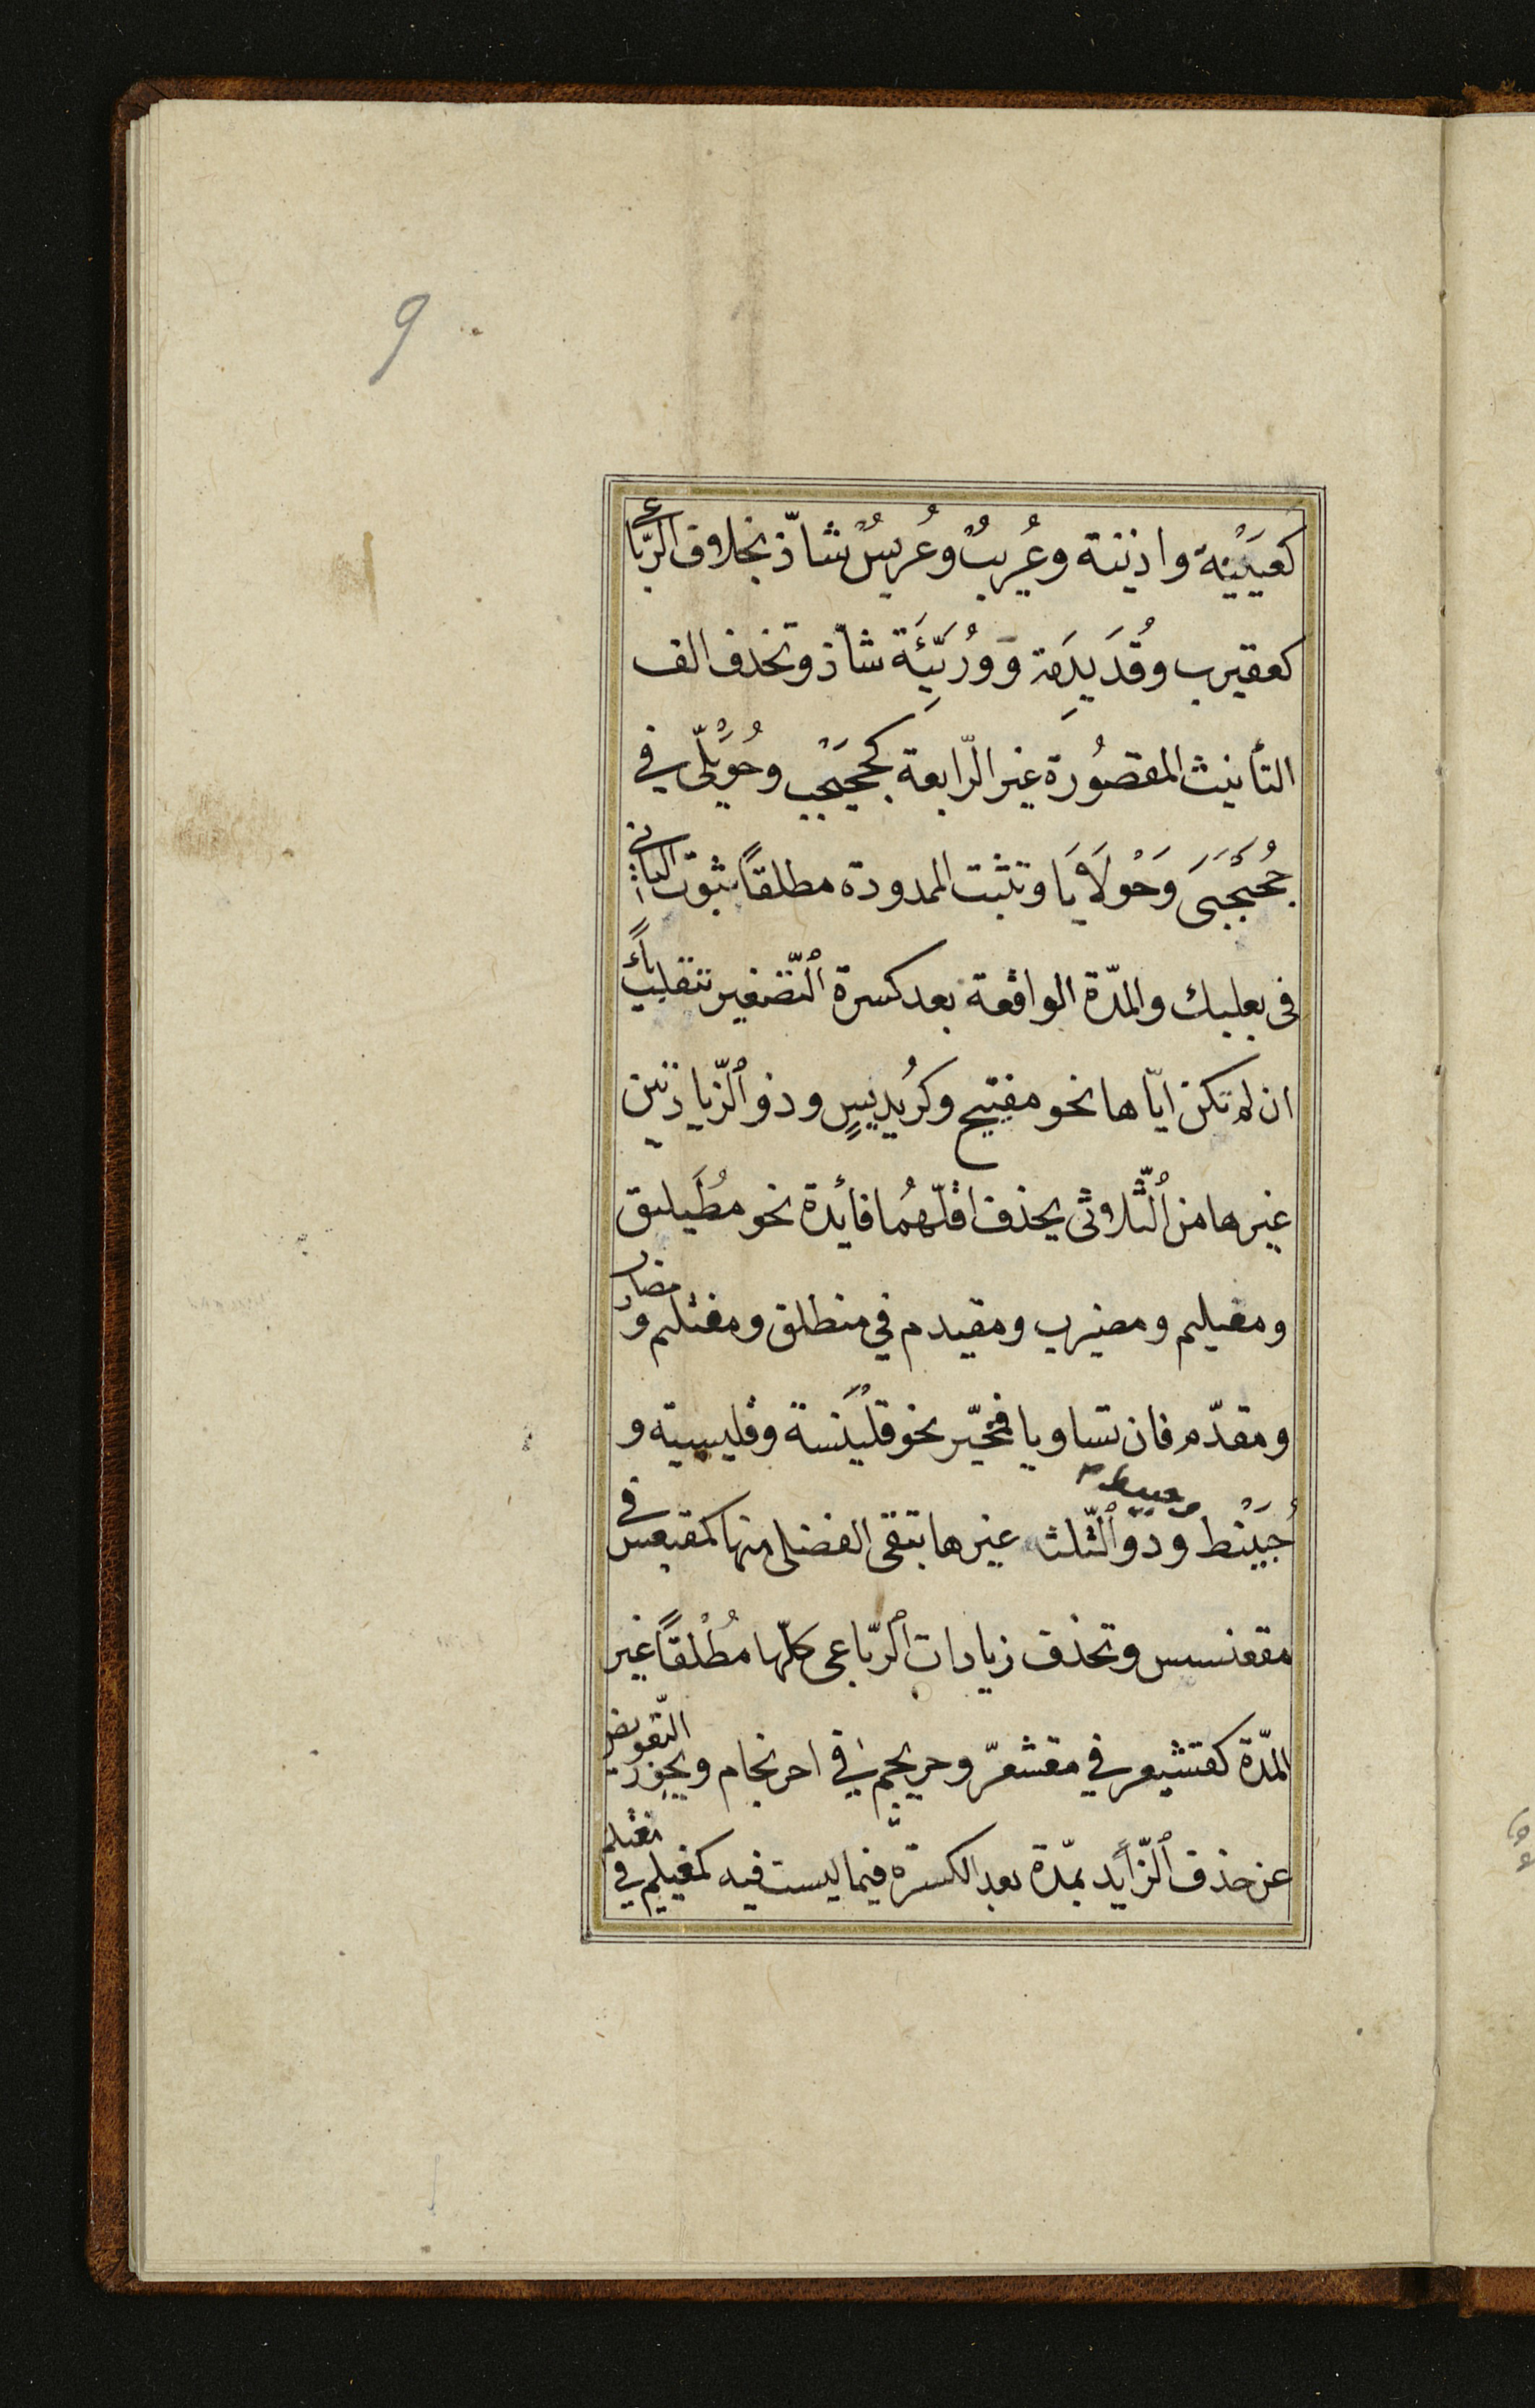 9
كعيَيْنة واذينة وعُريبٌ وعُريسٌ شاذّ بخلاف الرّباعى
كعقيرب وقُدَيدِمَة وَوُرَيِّئَة شاذ وتحذف الف
التأنيث المقصُورة غير الرّابعة كجحيْجب وحُوَيْلّى فى
جُحَجْبَىَ وَحْولاَيَا وتثبت الممدودة مطلقاً ثبوت الثانى
فى بعلبك والمدّة الواقعة بعد كسرة ٱلتّصغير تنقلب ياءً
ان لم تكن ايّاها نحو مفيتيح وكرُيديسٍ وذو ٱلزّيادتين
غيرها من ٱلثّلاثى يحذف اقلّهُما فائدة نحو مُطَيلق
ومغيلم ومضيرب ومقيدم فى منطلق ومغتلم ومضارب
ومقدّم فان تساويا فمخيّر نحو قلَيْنسة وقليسية و
حُبَيْنط وحبيط وذو ٱلثّلث غيرها تبقى الفضلى منها كمقيعس فى
مقعنسس وتحذف زيادات ٱلرّباعى كلّها مُطْلقاً غير
المدّة كقشيعر فى مقشعرّ وحريجيم فى احرنجام ويجوز التّعويض
عن حذف ٱلزّايد بمدّة بعد الكسرة فيما ليست فيه كمغيليم فى مغتلم